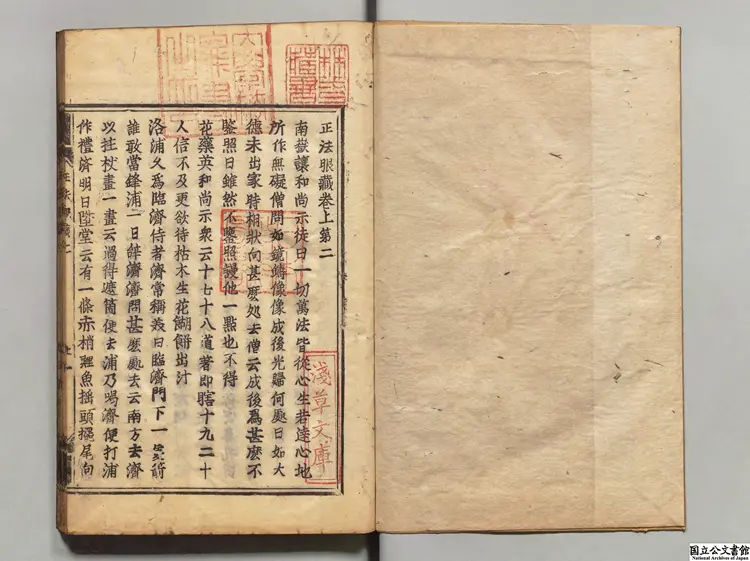 正法眼藏卷上第二
南嶽讓和尚示徒曰一切萬法皆從心生若達心地
所作無礙僧問如鏡鑄像像成後光歸何處曰如大
德未出家時相狀向甚麽処去僧云成後爲甚麽不
鑒照曰雖然不鑒照謾他一點也不得
花藥英和尚示衆云十七十八道著即瞎十九二十
人信不及更欲待枯木生花餬餅出汁
洛浦久爲臨濟侍者濟常稱羨曰臨濟門下一隻箭
誰敢當鋒浦一日辭濟濟問甚麽處去云南方去濟
以拄杖畫一畫云過得遮箇便去浦乃喝濟便打浦
作禮濟明日陞堂云有一條赤梢鯉魚搖頭擺尾向
淺草文庫
国立公文書館
National Archives of Japan